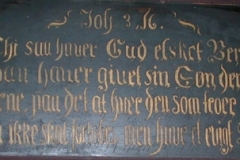 Joh 3. 16.
Thi saa haver Gud elsket Ver
han haver givet sin Søn den
ene paa det at hver den som troer
ikke skal men have et evigt